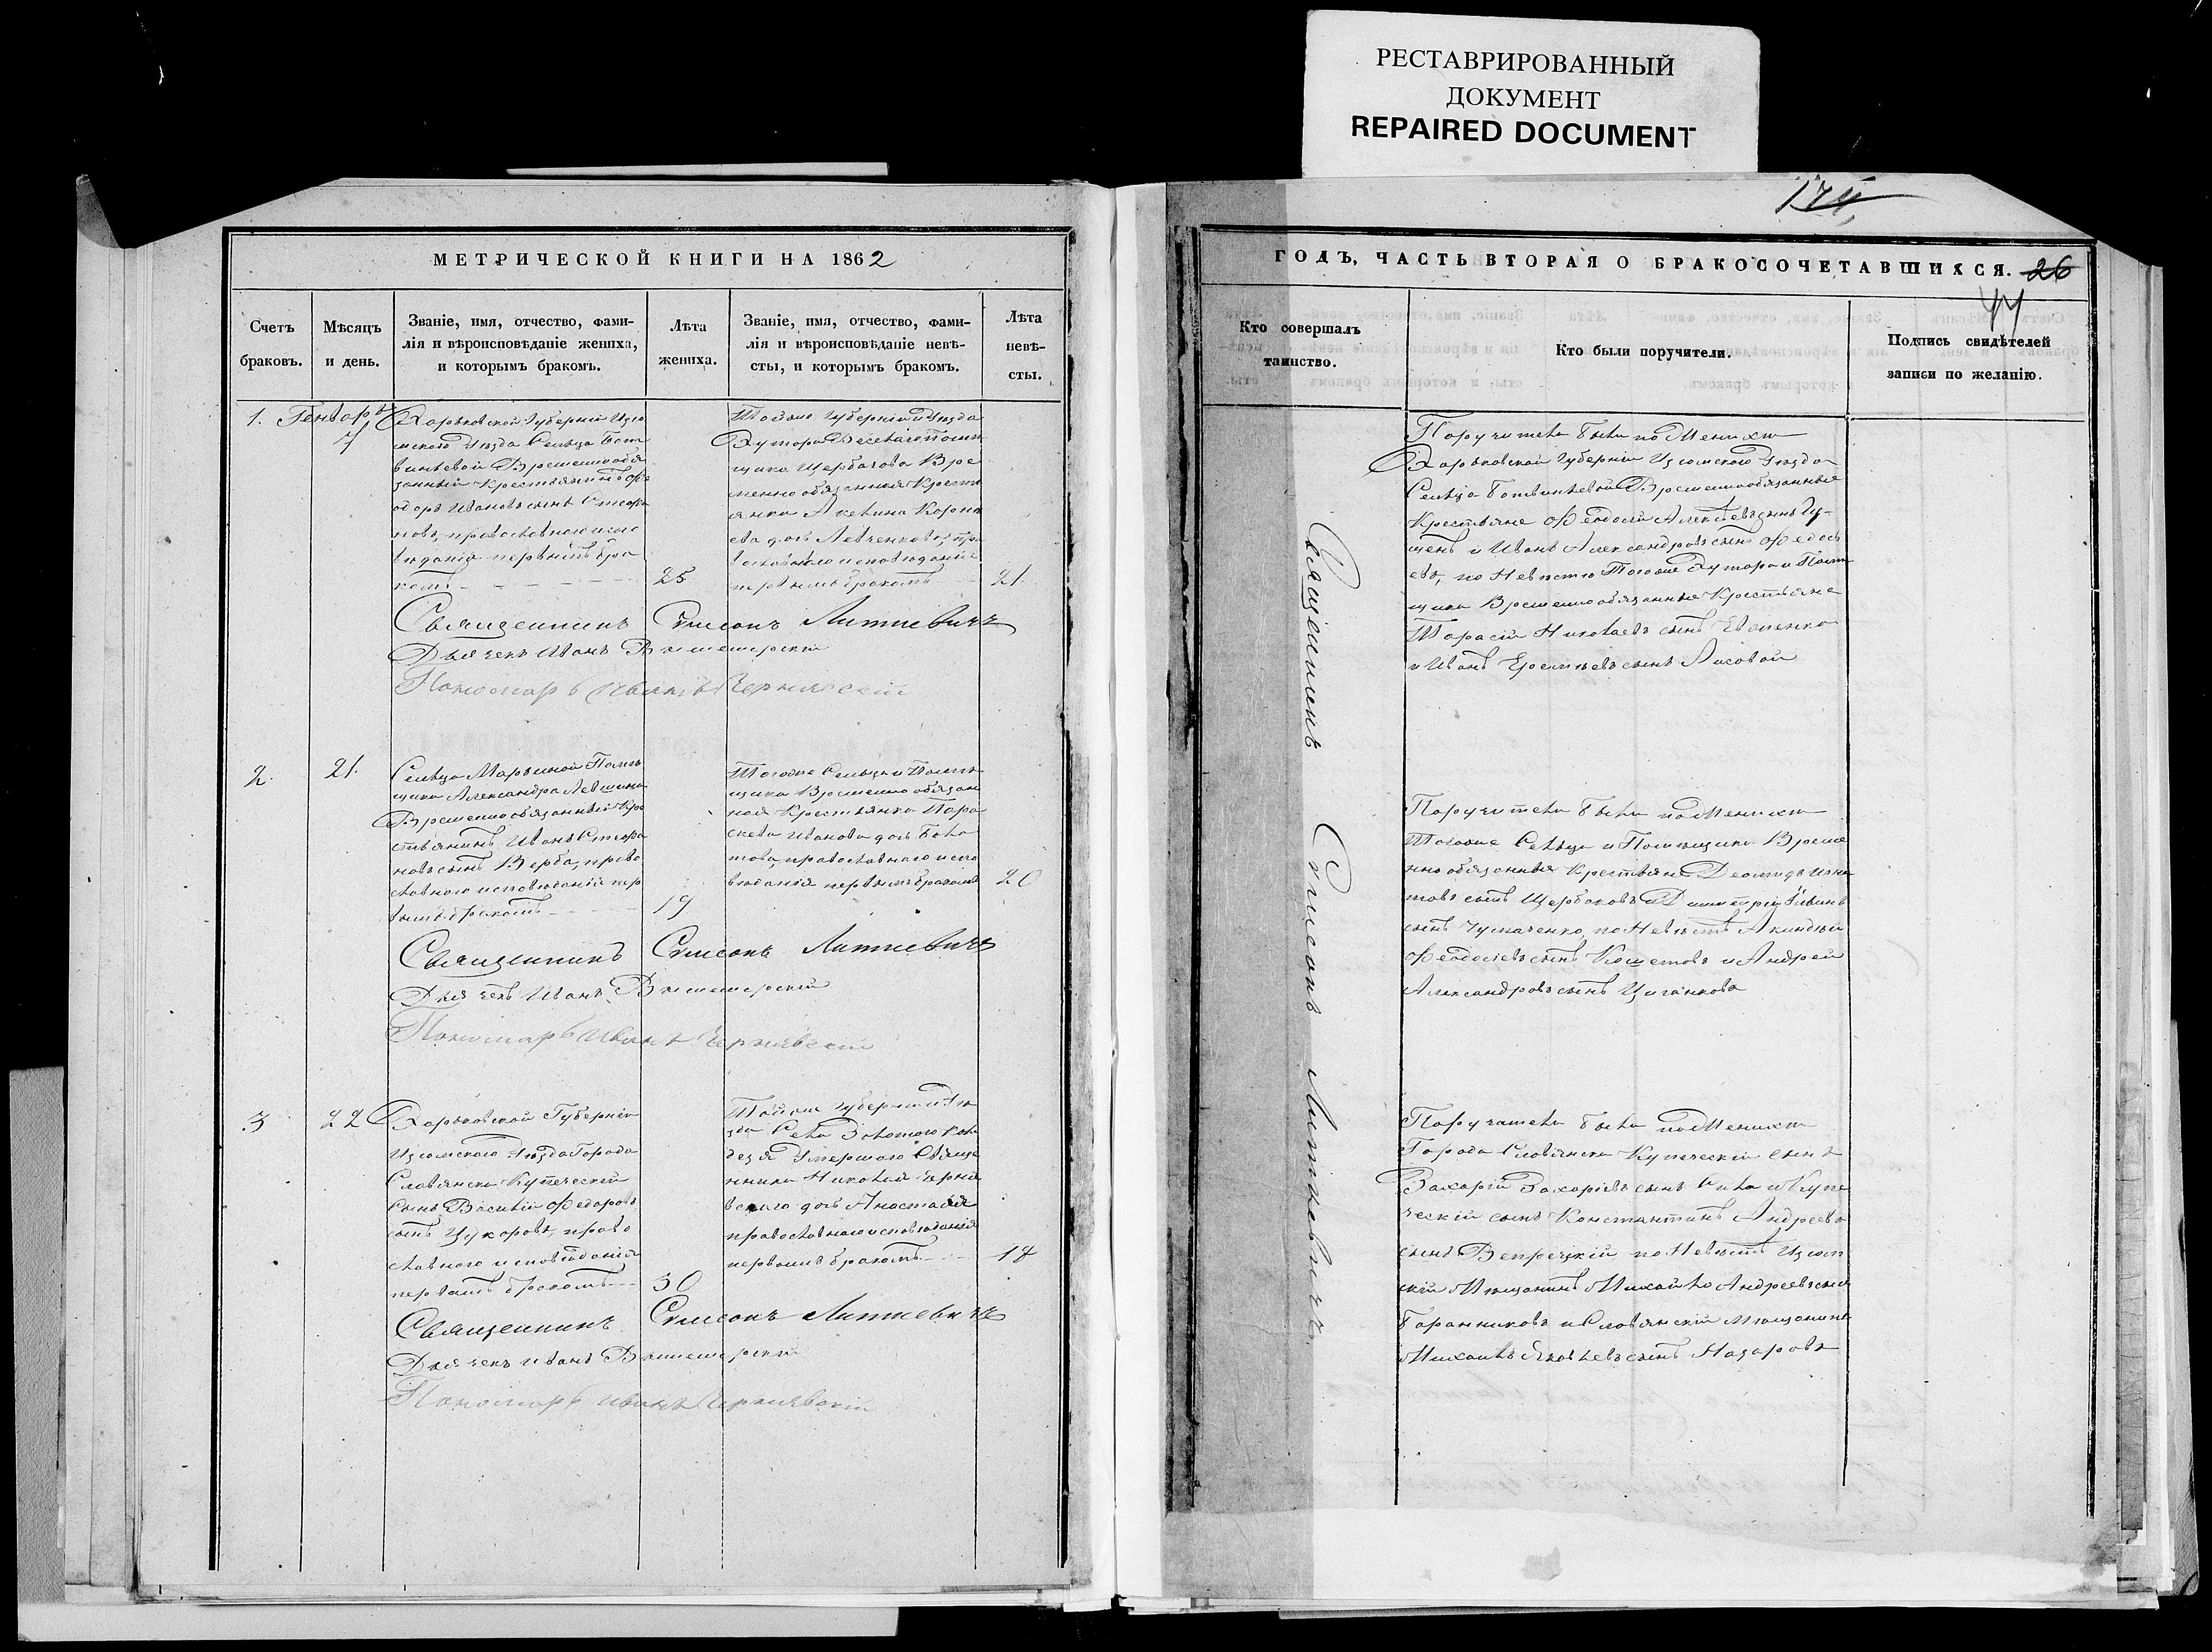 РЕСТАВРИРОВАННЫЙ
ДОКУМЕНТ
REPAIRED DOCUMENT
МЕТРИЧЕСКОЙ КНИГИ НА 1862
Счетъ
браковъ.
Мѣсяцъ
и день.
Званіе, имя, отчество, фами-
лія и вѣроисповѣданіе жениха,
и которымъ бракомъ.
Лѣта
жениха.
Званіе, имя, отчество, фами-
лія и вѣроисповѣданіе невѣ-
сты, и которымъ бракомъ.
Лѣта
невѣ-
сты.
1.
7
Харьковской Губерніи Изю
мскаго Уѣзда Сельца
Временнообя
занный Крестьянинъ
Ивановъ сынъ
православнаго испо
вѣданія первымъ бра
комъ
25
Тойже Губерніи и Уѣзда
Хутора
щика Щербачова Вре
меннообязанная Кресть
янка Акелина
дочь Левченкова, пра
вославнаго исповѣданія
первымъ бракомъ
21.
Священникъ Симеонъ Литкевичъ
Дьячекъ Иванъ
Пономарь Иванъ Чернявскій
2.
21.
Сельца Марьиной Помѣ
щика Александра Левшина
Временнообязанный Кре
стьянинъ Иванъ
новъ сынъ Верба, право
славнаго исповѣданія пер
вымъ бракомъ
19
Тогоже Сельца и Помѣ
щика Временнообязан
ная Крестьянка Пара
скева Иванова дочь
православнаго испо
вѣданія первымъ бракомъ
20
Священникъ Симеонъ Литкевичъ
Дьячекъ Иванъ
Пономарь Иванъ Чернявскій
3
22
Харьковской Губерніи
Изюмскаго Уѣзда Города
Славянска Купеческій
Сынъ Василій Федоровъ
сынъ Цукоровъ, право
славнаго исповѣданія
первымъ бракомъ
30
Тойже Губерніи и Уѣ
зда Села Золотого Коло
дезя Умершаго Свяще
нника Николая Черня
вскаго дочь Анастасія
православнаго исповѣданія
первымъ бракомъ
18
Священникъ Симеонъ Литкевичъ
Дьячекъ Иванъ
Пономарь Иванъ Чернявскій
174
ГОДЪ, ЧАСТЬ ВТОРАЯ О БРАКОСОЧЕТАВШИХСЯ. 26
44
Кто совершалъ
таинство.
Кто были поручители.
Подпись свидѣтелей
записи по желанію.
Священникъ Симеонъ Литкевичъ.
Поручители были по Женихѣ
Харьковской Губерніи Изюмскаго Уѣзда
Сельца Временнообязанные
Крестьяне Феодосій Алексѣевъ сынъ
и Иванъ Александровъ сынъ
по Невѣстѣ Тогоже Хутора и Помѣ
щика Временнообязанные Крестьяне
Тарасій Николаевъ сынъ
и Иванъ Еремѣевъ сынъ Лисовой
Поручители были по Женихѣ
Тогоже Сельца и Помѣщика Време
ннообязанные Крестьяне Деомидъ
сынъ Щербаковъ и Димитрій Ивановъ
сынъ Чумаченко, по Невѣстѣ Акиндинъ
Феодосіевъ сынъ Кошетовъ и Андрей
Александровъ сынъ Циганковъ
Поручители были по Женихѣ
Города Славянска Купеческій сынъ
Захарій Захаріевъ сынъ и Купе
ческій сынъ Константинъ Андреевъ
сынъ Вепрецкій по Невѣстѣ Изюм
скій Мѣщанинъ Михайло Андреевъ сынъ
Баранниковъ и Славянскій Мѣщанинъ
Михаилъ Яковлевъ сынъ Назаровъ